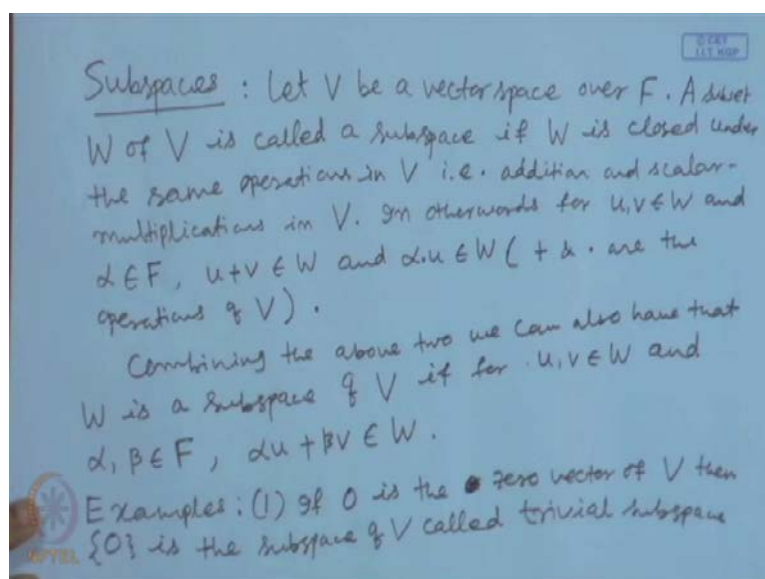 © CET
I.I.T. KGP
Subspaces : Let V be a vector space over F. A subset
W of V is called a subspace if W is closed under
the same operations in V i.e. addition and scalar-
multiplications in V. In otherwords for u,v ∈ W and
α ∈ F, u+v ∈ W and α.u ∈ W ( + & . are the
operations of V).
Combining the above two we can also have that
W is a subspace of V if for u,v ∈ W and
α, β ∈ F, αu + βv ∈ W.
Examples: (1) If 0 is the zero vector of V then
{0} is the subspace of V called trivial subspace
NPTEL